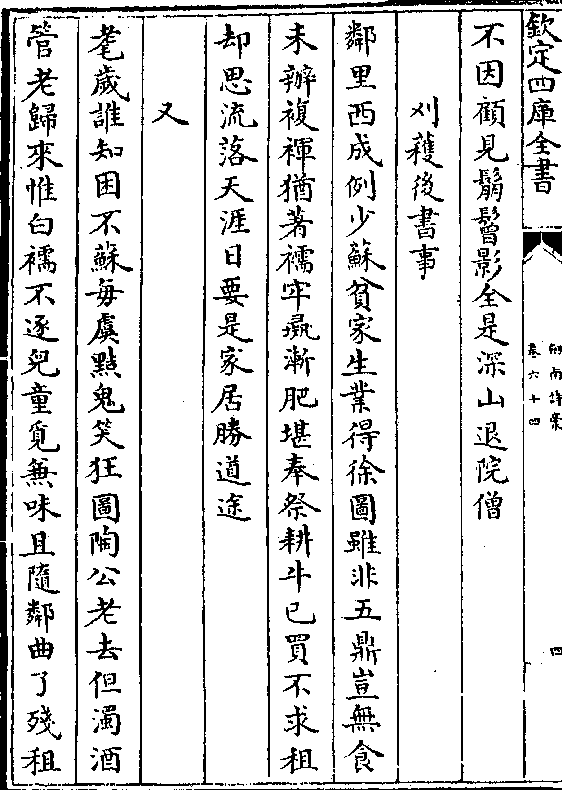 欽定四庫全書
劍南詩藁
卷六十四
四
不因顧見鬅鬙影全是深山退院僧
刈穫後書事
鄰里西成例少蘇貧家生業得徐圖雖非五鼎豈無食
未辦複褌猶著襦牢彘漸肥堪奉祭耕牛已買不求租
却思流落天涯日要是家居勝道途
又
耄歲誰知困不蘇每虞黠鬼笑狂圖陶公老去但濁酒
管老歸來惟白襦不逐兒童覓無味且隨鄰曲了殘租